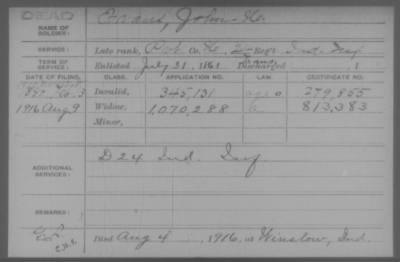 DEAD
NAME OF SOLDIER: Evans, John H.
SERVICE: Late rank, Pvt. Co. H, 2 Regt. Inf.
TERM OF SERVICE: Enlisted July 31, 1861 Discharged , 1
DATE OF FILING. CLASS. APPLICATION NO. LAW. CERTIFICATE NO.
Invalid, 345,131 279,855
1916 Aug 9 Widow, 1,070,288 813,383
Minor,
ADDITIONAL SERVICES: D 24 Ind. Inf
REMARKS:
Died Aug 4, 1916, at Winslow, Ind.